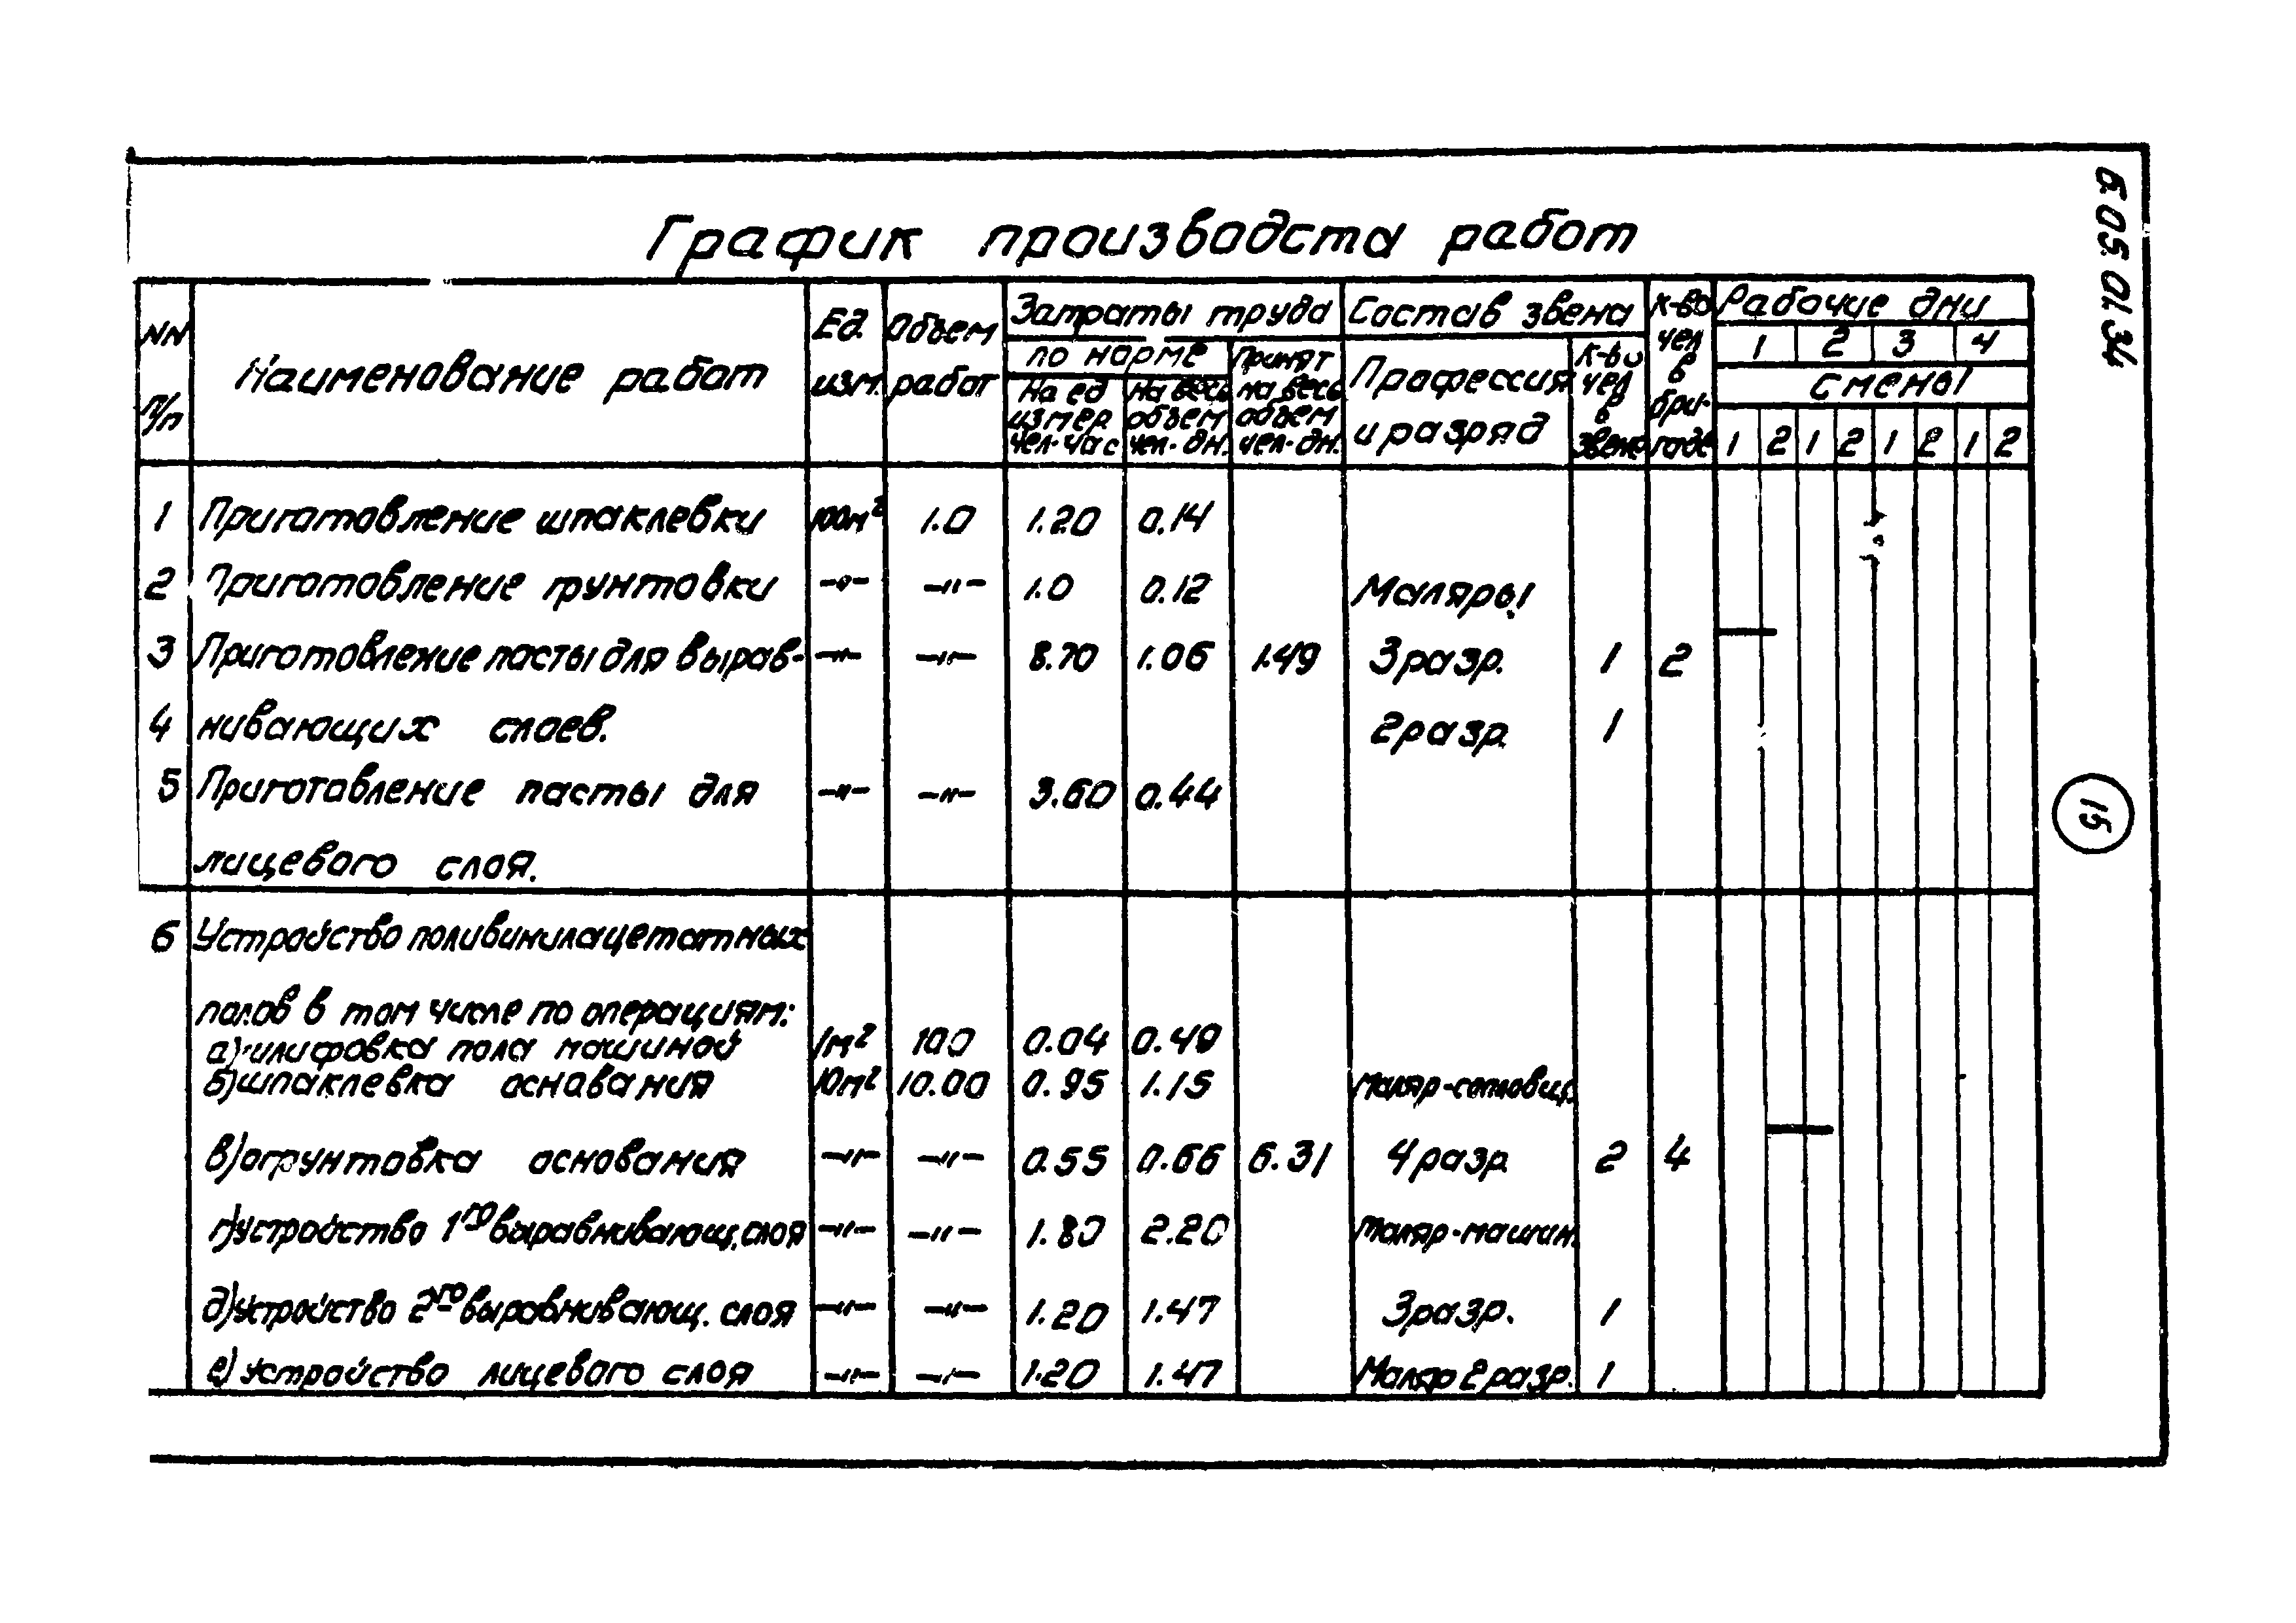 6.05.01.34
График производста работ
NN п/п Наименование работ Ед. изм. Объем работ Затраты труда Состав звена к-во чел в бригаде Рабочие дни
по норме Принят на весь объем чел.дн. Профессия и разряд к-во чел в звене 1 2 3 4
На ед измер. чел-час на весь объем чел. дн. смены
1 2 1 2 1 2 1 2
1 Приготовление шпаклевки 100м² 1.0 1.20 0.14
2 Приготовление грунтовки -"- -"- 1.0 0.12 Маляры
3 Приготовление пасты для вырав- -"- -"- 8.70 1.06 1.49 3 разр. 1 2
4 нивающих слоев. 2 разр. 1
5 Приготовление пасты для -"- -"- 3.60 0.44
лицевого слоя.
15
6 Устройство поливинилацетатных
полов в том числе по операциям:
а) шлифовка пола машиной 1м² 100 0.04 0.49
б) шпаклевка оснавания 10м² 10.00 0.95 1.15
в) огрунтовка основания -"- -"- 0.55 0.66 6.31 4 разр. 2 4
г) устройство 1го выравнивающ. слоя -"- -"- 1.80 2.20 маляр-машин.
д) устройство 2го выравнивающ. слоя -"- -"- 1.20 1.47 3 разр. 1
е) устройство лицевого слоя -"- -"- 1.20 1.47 Маляр 2 разр. 1